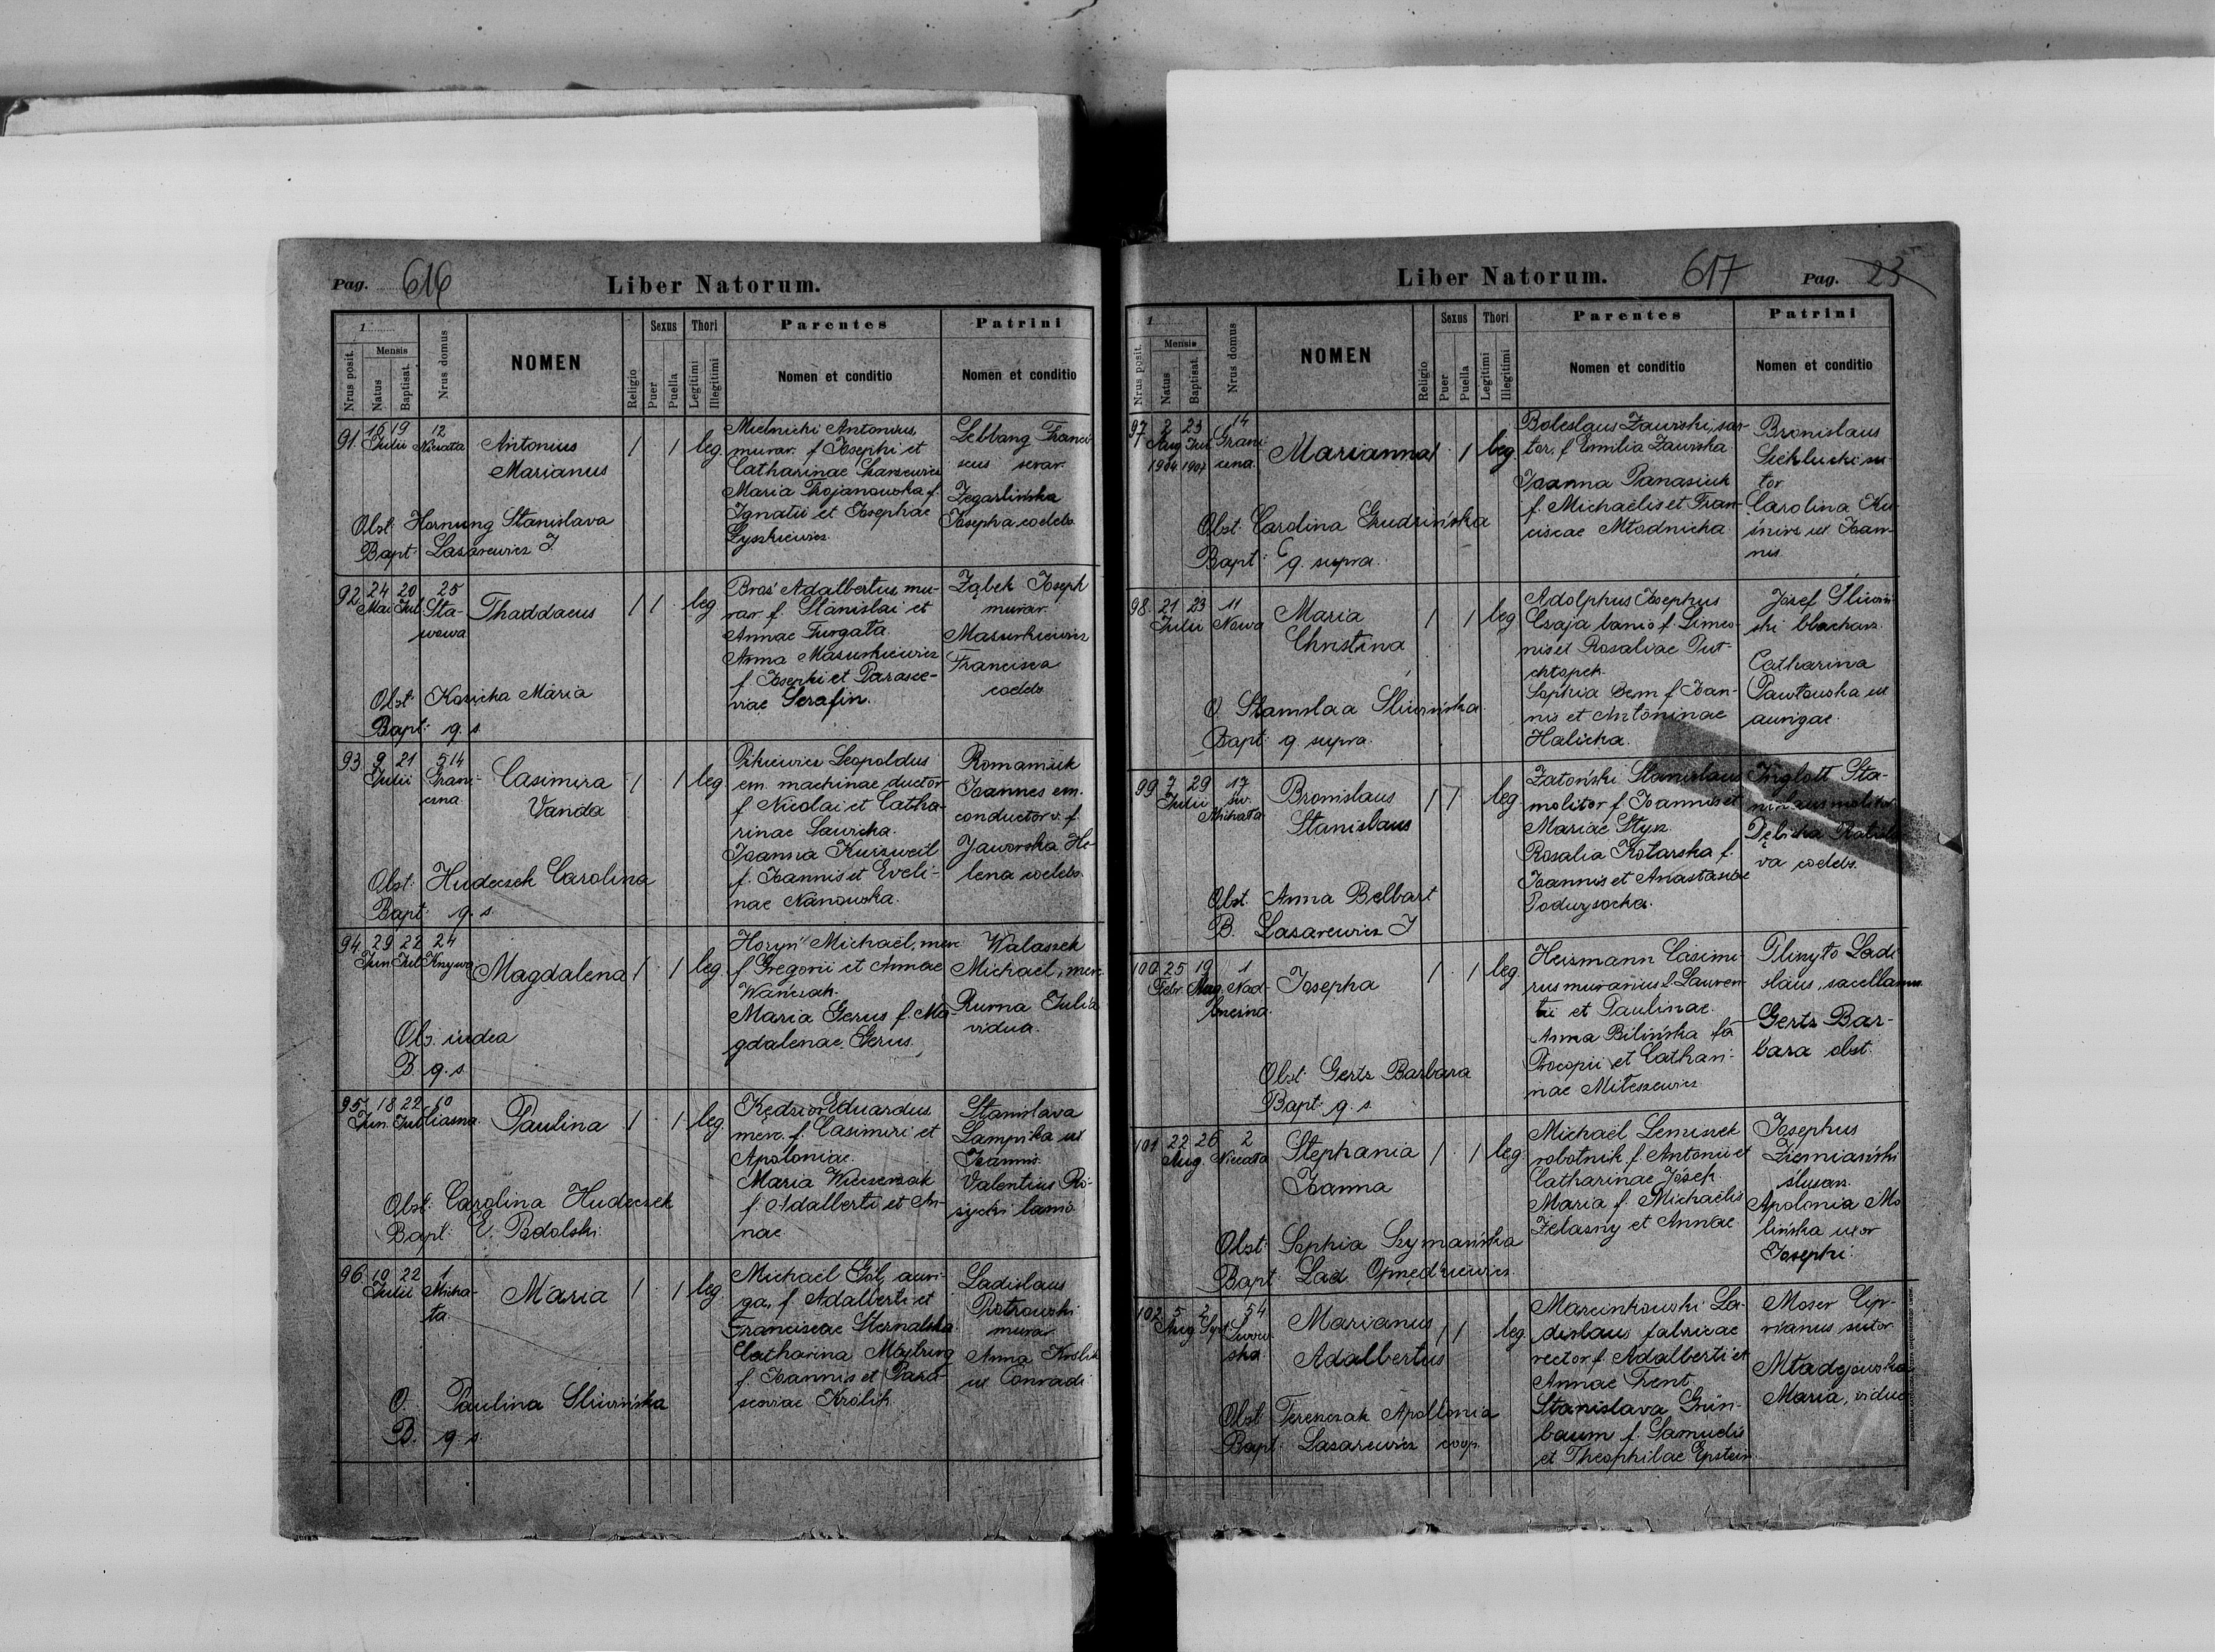 Pag. 616 Liber Natorum.
1
Nrus posit.
Mensis
Natus
Baptisat.
Nrus domus
NOMEN
Religio
Sexus
Puer
Puella
Thori
Legitimi
Illegitimi
Parentes
Nomen et conditio
Patrini
Nomen et conditio
91. 16 19 12
Julii
Antonius
Marianus
1 1 leg.
Obst: Hornung Stanislava
Bapt: Lasarewicz J.
Mielnicki Antonius
murar. f. Josephi et
Catharinae
Maria Trojanowska f.
Ignatii et Josephae
Zyszkiewicz.
Leblang Franci-
scus
Zegarlińska
Josepha coelebs.
92. 24 20 25
Mai Jul. Sta-
wowa
Thaddaeus
1 1 leg
Obst: Kozicka Maria
Bapt: q. s.
Broś Adalbertus, mu-
rar. f. Stanislai et
Annae Furgata
Anna Masurkiewicz
f. Josephi et Parasce-
viae Serafin.
Ząbek Joseph
murar.
Masurkiewicz
Francisca
coelebs
93. 9 21 514
Julii Grani-
czna.
Casimira
Vanda
1 1 leg
Obst: Hudeczek Carolina
Bapt: q. s.
Leopoldus
em. machinae ductor
f. Nicolai et Catha-
rinae Sawicka.
Joanna Kurzweil
f. Joannis et Eveli-
nae Nanowska.
Romaniuk
Joannes em.
conductor v. f.
Jaworska He-
lena coelebs.
94. 29 22 24
Jun. Jul. Krzywa
Magdalena
1 1 leg.
Obs. iudea
B. q. s.
Horyń Michaël, merc
f. Gregorii et Annae
Wańczak.
Maria Gerus f. Ma-
gdalenae Gerus.
Walaszek
Michael, merc.
Rurna Julia
vidua.
95. 18 22 10
Jun. Jul.
Paulina
1 1 leg.
Obst: Carolina Hudeczek
Bapt: E. Podolski.
Kędzior Eduardus
merc. f. Casimiri et
Apoloniae.
Maria
f. Adalberti et An-
nae
Stanislava
Lampika ux
Joannis.
Valentius Ró-
życki lanio.
96. 10 22 1
Julii Micha-
ła.
Maria
1 1 leg
O. Paulina Sliwińska
B. q. s.
Michaël Gol, auri-
ga, f. Adalberti et
Franciscae Sternalska
Catharina
f. Joannis et Para-
sceviae Królik.
Ladislaus
Piotrowski
murar
Anna Królik
ux Conradi
Liber Natorum. 617 Pag. 23
1
Nrus posit.
Mensis
Natus
Baptisat.
Nrus domus
NOMEN
Religio
Sexus
Puer
Puella
Thori
Legitimi
Illegitimi
Parentes
Nomen et conditio
Patrini
Nomen et conditio
97. 2 23 14
Aug Jul. Grani-
1904 1907 czna.
Marianna
1 1 leg.
Obst: Carolina Grudzińska
Bapt: q. supra.
Boleslaus Zawiski, sar-
tor, f. Emilia Zawiska
Joanna Panasiuk
f. Michaëlis et Fran-
ciscae Młodnicka
Bronislaus
su-
tor
Carolina Ku-
śnirz ux Joan-
nis.
98. 21 23 11
Julii Nowa
Maria
Christina
1 1 leg
O. Stanislaa Sliwińska.
Bapt: q. supra.
Adolphus Josephus
Czaja lanio f. Simeo-
nis et Rosaliae
Sophia Bem f. Joan-
nis et Antoninae
Halicka.
Józef Śliwiń-
ski blacharz.
Catharina
Pawłowska ux
aurigae.
99. 7 29 17
Julii św.
Michała
Bronislaus
Stanislaus
1 1 leg.
Obst. Anna Belbart
B. Lasarewicz J
Zatoński Stanislaus
molitor f. Joannis et
Mariae Stysz.
Rosalia Kotarska f.
Joannis et Anastasiae
Podwysocka.
Inglott Sta-
nislaus molitor
Dębicka
va coelebs.
100. 25 19 1
Febr. Aug. Nad-
brzeżna.
Josepha
1 1 leg
Obst: Gertz Barbara
Bapt: q. s.
Heizmann Casimi-
rus murarius f. Lauren-
tii et Paulinae.
Anna Bilińska fa
Procopii et Cathari-
nae Mileszewicz
Ladi-
slaus, sacellanus
Gertz Bar-
bara obst.
101 22 26 2
Aug. Niecała
Stephania
Joanna
1 1 leg
Obst: Sophia Szymańska
Bapt: Lad.
Michaël Lemiszek
robotnik f. Antonii et
Catharinae Józef.
Maria f. Michaëlis
Żelazny et Annae
Josephus
Ziemiański
ślusarz.
Apolonia Mo-
lińska uxor
Josephi.
102. 5 2 54
Aug.
Marianus
Adalbertus
1 1 leg.
Obst: Terenczak Apollonia
Bapt. Lasarewicz coop.
Marcinkowski La-
dislaus fabricae
rector f. Adalberti et
Annae Trent
Stanislava Grün-
baum f. Samuelis
et Theophilae Epstein.
Moser Cyp-
rianus sutor
Mładejowska
Maria, vidua